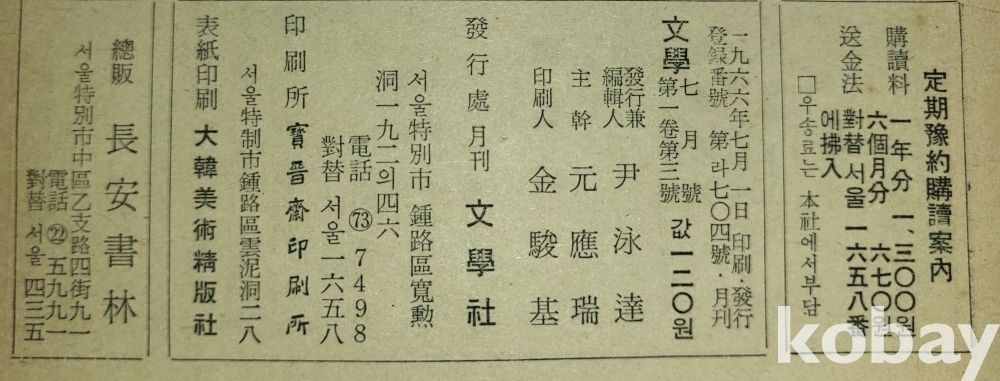 定期豫約購讀案內
購讀料 一年分 一、三〇〇원
六個月分 六七〇원
送金法 對替 서울 一六五八番
에拂入
□우송료는 本社에서부담
一九六六年七月一日 印刷·發行
登錄番號 第 라七〇四號·月刊
文學 七月號 값一二〇원
第一卷第三號
發行兼
編輯人 尹泳達
主幹 元應瑞
印刷人 金駿基
發行處 月刊 文學社
서울特別市 鍾路區寬勳
洞一九二의四六
電話 ㉂ 7498
對替 서울一六五八
印刷所 寶晋齋印刷所
서울特制市鍾路區雲泥洞二八
表紙印刷 大韓美術精版社
總販 長安書林
서울特別市中區乙支路四街九一
電話 ㉒ 五九九一
對替 서울 四三五
kobay